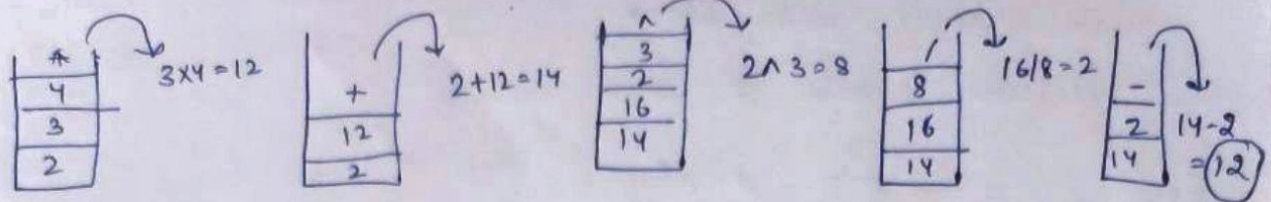 *
4
3
2
3x4=12
+
12
2
2+12=14
^
3
2
16
14
2^3=8
/
8
16
14
16/8=2
-
2
14
14-2
=12